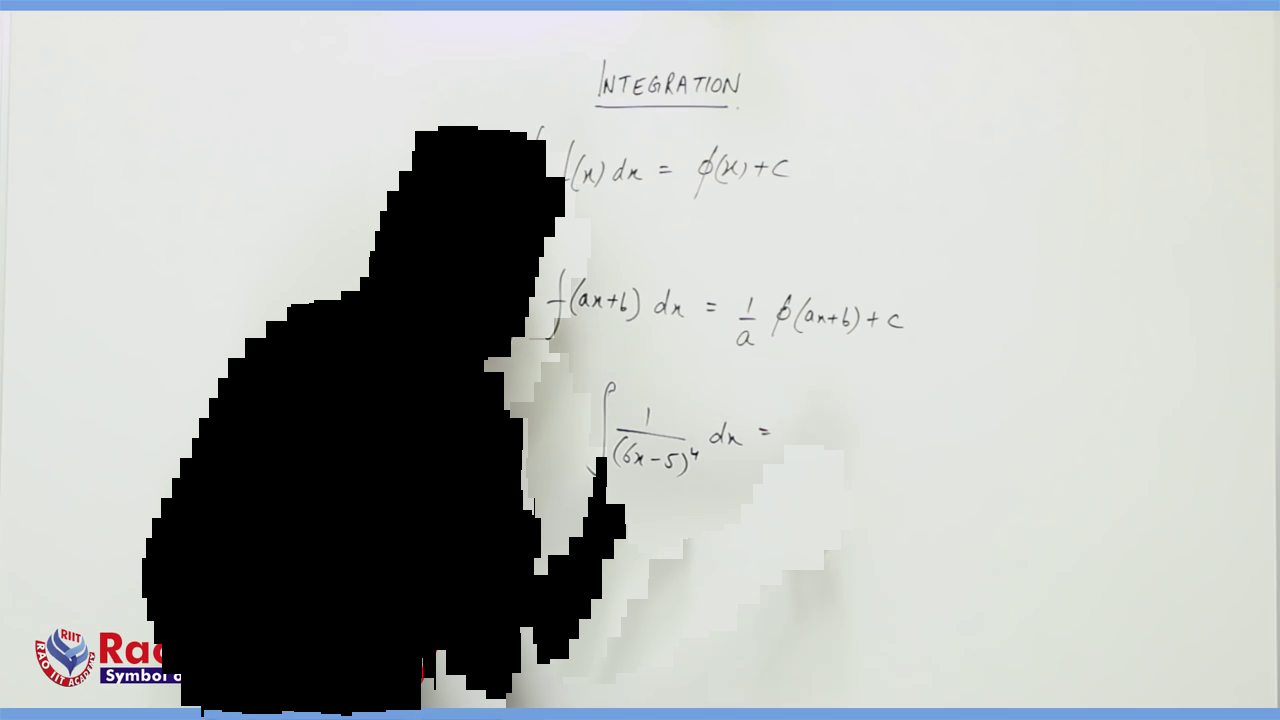 INTEGRATION
f(x) dx = ϕ(x) + c
f(ax+b) dx = 1/a ϕ(ax+b) + c
∫ 1/(6x-5)^4 dx =
RIIT
RAO IIT ACADEMY
Symbol